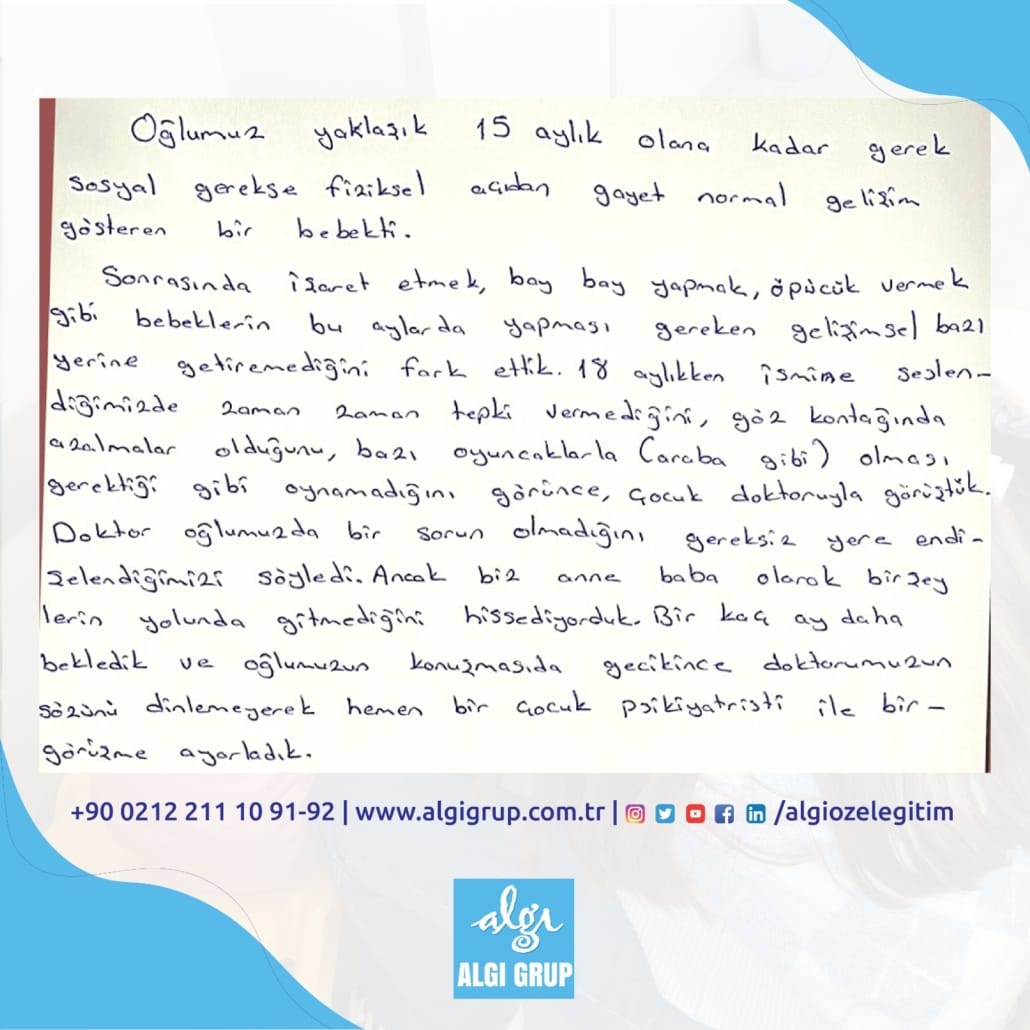 Oğlumuz yaklaşık 15 aylık olana kadar gerek
sosyal gerekse fiziksel açıdan gayet normal gelişim
gösteren bir bebekti.
Sonrasında işaret etmek, bay bay yapmak, öpücük vermek
gibi bebeklerin bu aylarda yapması gereken gelişimsel bazı
yerine getiremediğini fark ettik. 18 aylıkken ismine seslen-
diğimizde zaman zaman tepki vermediğini, göz kontağında
azalmalar olduğunu, bazı oyuncaklarla (araba gibi) olması
gerektiği gibi oynamadığını görünce, çocuk doktoruyla görüştük.
Doktor oğlumuzda bir sorun olmadığını gereksiz yere endi-
şelendiğimizi söyledi. Ancak biz anne baba olarak birşey
lerin yolunda gitmediğini hissediyorduk. Bir kaç ay daha
bekledik ve oğlumuzun konuşmasıda gecikince doktorumuzun
sözünü dinlemeyerek hemen bir çocuk psikiyatristi ile bir-
görüşme ayarladık.
+90 0212 211 10 91-92 | www.algigrup.com.tr | /algiozelegitim
algı
ALGI GRUP